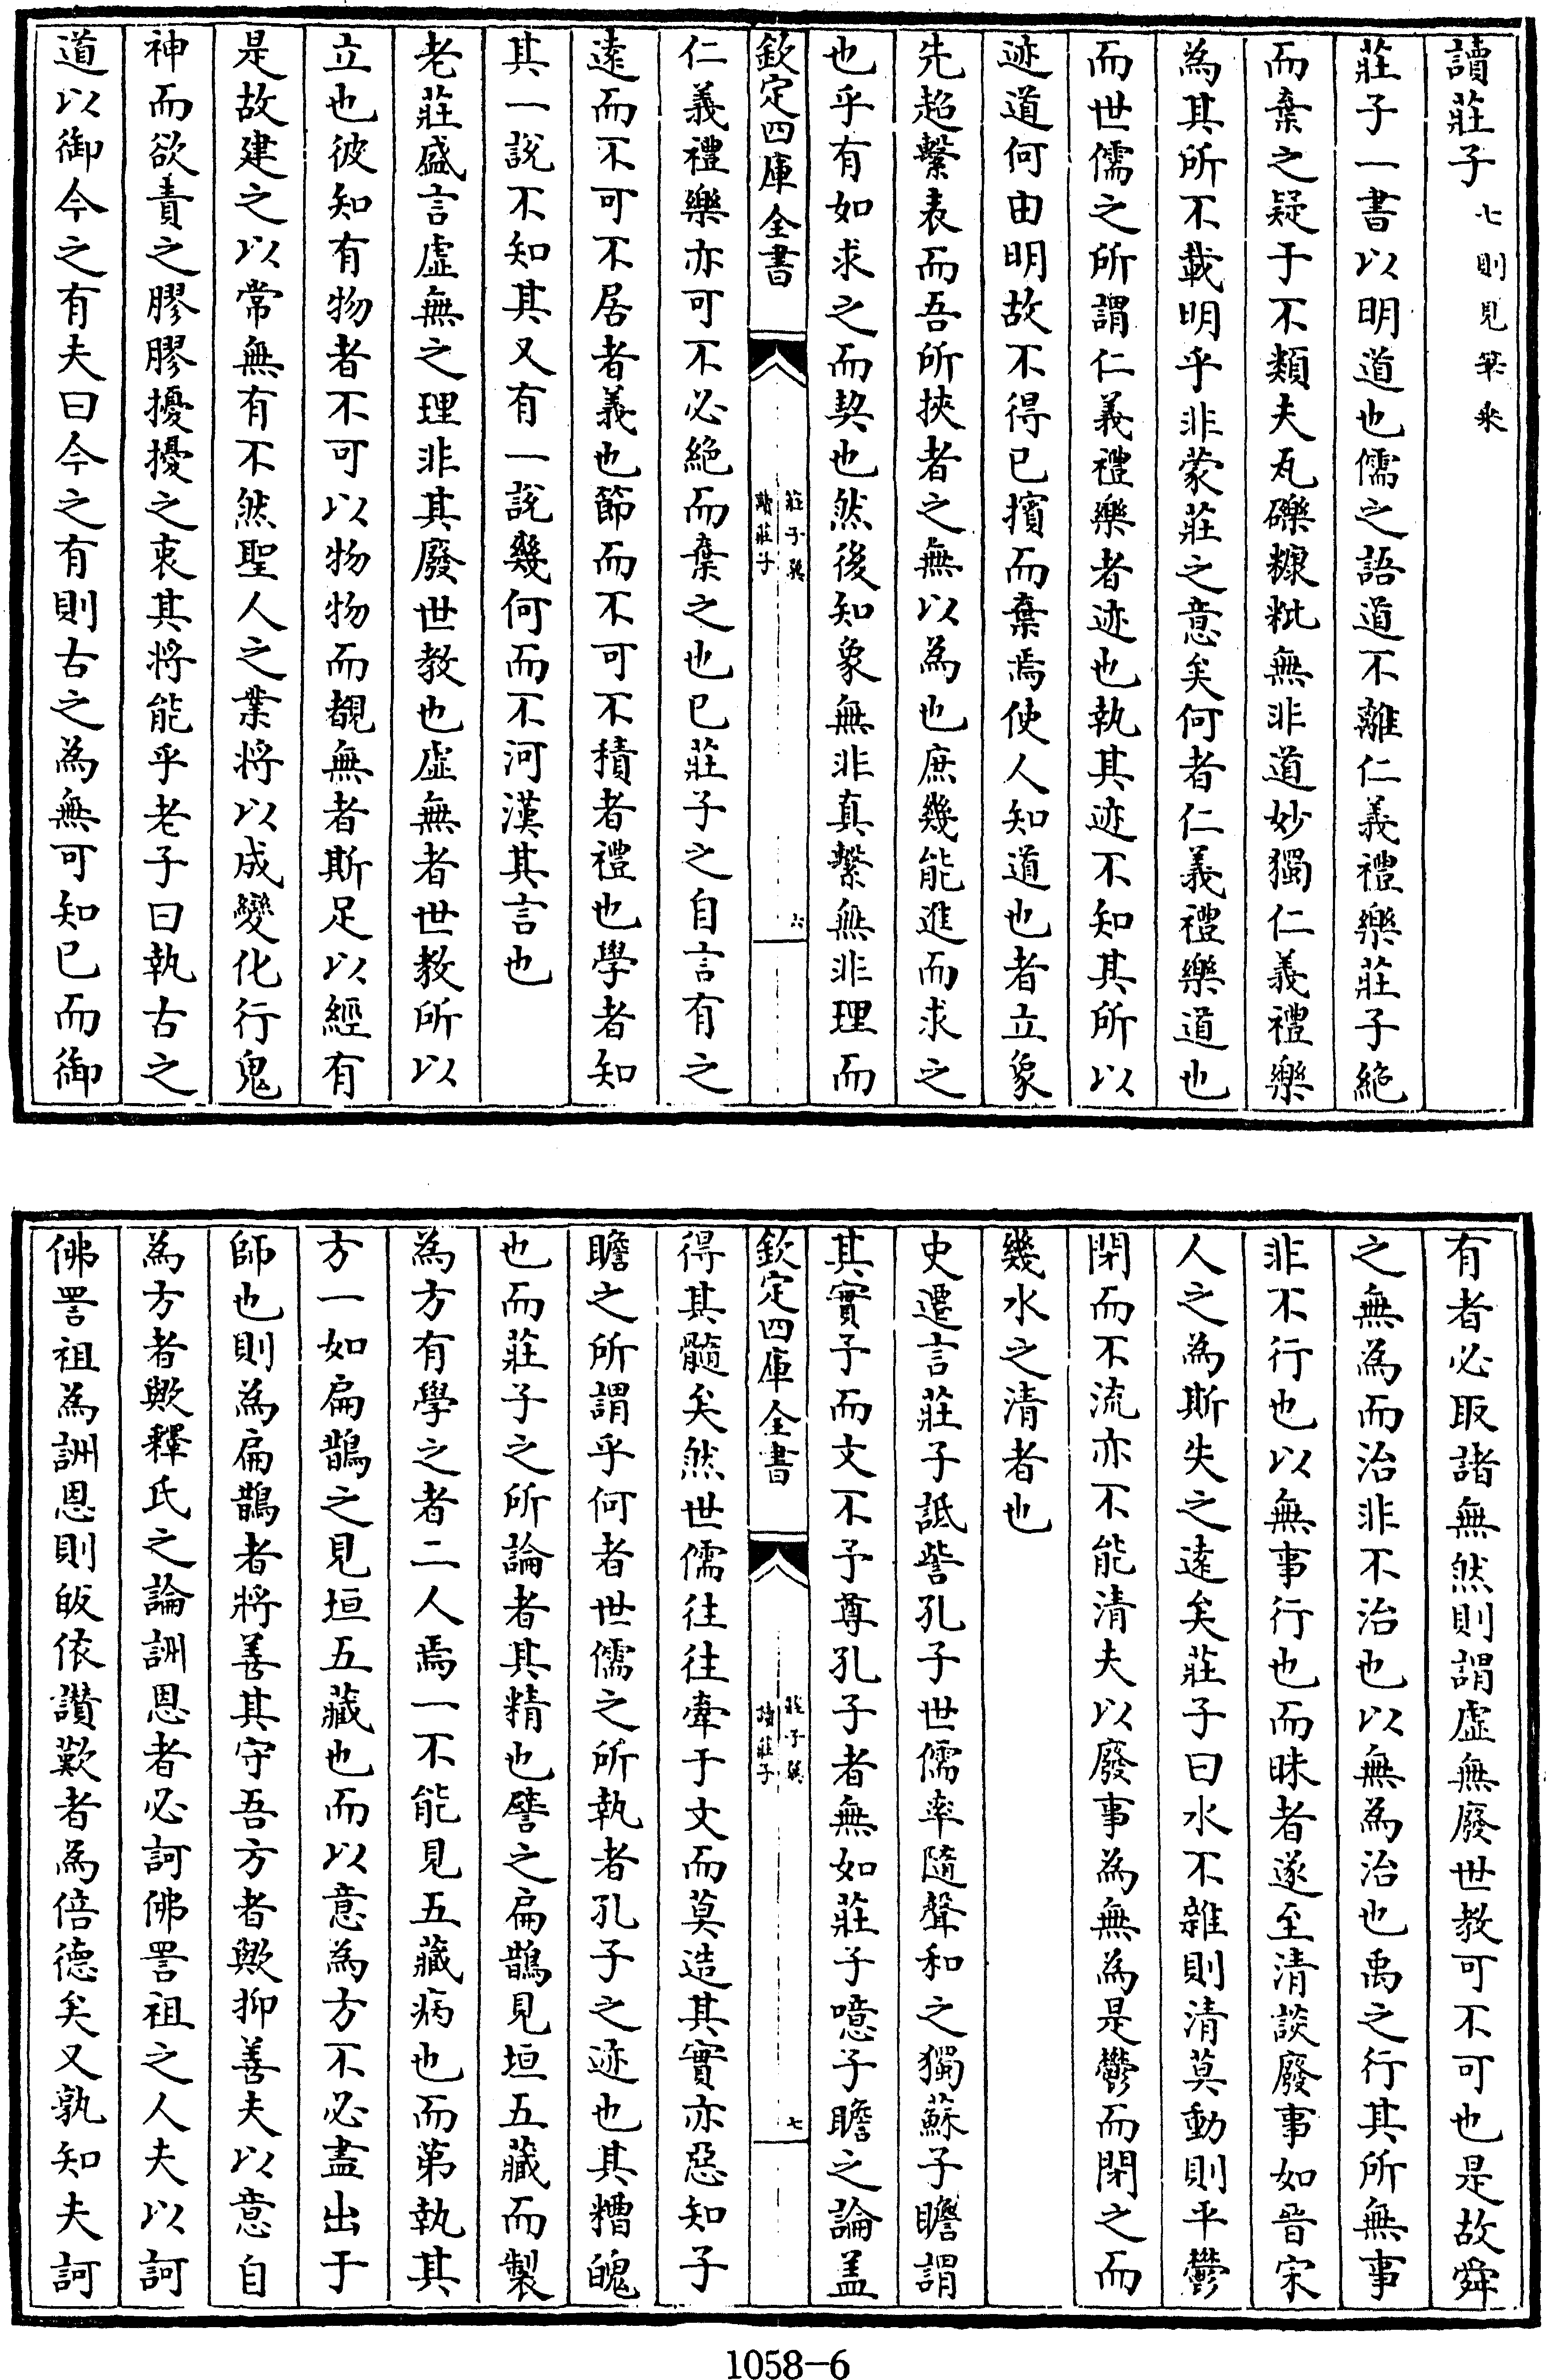 讀莊子七則見筆乘
莊子一書以明道也儒之語道不離仁義禮樂莊子絶
而棄之疑于不類夫瓦礫糠粃無非道妙獨仁義禮樂
為其所不載明乎非蒙莊之意矣何者仁義禮樂道也
而世儒之所謂仁義禮樂者迹也執其迹不知其所以
迹道何由明故不得已擯而棄焉使人知道也者立象
先超繫表而吾所挾者之無以為也庶幾能進而求之
也乎有如求之而契也然後知象無非真繫無非理而
欽定四庫全書
莊子翼
讀莊子
六
仁義禮樂亦可不必絶而棄之也已莊子之自言有之
遠而不可不居者義也節而不可不積者禮也學者知
其一說不知其又有一說幾何而不河漢其言也
老莊盛言虛無之理非其廢世教也虛無者世教所以
立也彼知有物者不可以物物而覩無者斯足以經有
是故建之以常無有不然聖人之業將以成變化行鬼
神而欲責之膠膠擾擾之衷其將能乎老子曰執古之
道以御今之有夫曰今之有則古之為無可知已而御
有者必取諸無然則謂虛無廢世教可不可也是故舜
之無為而治非不治也以無為治也禹之行其所無事
非不行也以無事行也而昧者遂至清談廢事如晉宋
人之為斯失之遠矣莊子曰水不雜則清莫動則平鬱
閉而不流亦不能清夫以廢事為無為是鬱而閉之而
幾水之清者也
史遷言莊子詆訾孔子世儒率隨聲和之獨蘇子瞻謂
其實予而文不予尊孔子者無如莊子噫子瞻之論盖
欽定四庫全書
莊子翼
讀莊子
七
得其髓矣然世儒往往牽于文而莫造其實亦惡知子
瞻之所謂乎何者世儒之所執者孔子之迹也其糟魄
也而莊子之所論者其精也譬之扁鵲見垣五藏而製
為方有學之者二人焉一不能見五藏病也而第執其
方一如扁鵲之見垣五藏也而以意為方不必盡出于
師也則為扁鵲者將善其守吾方者歟抑善夫以意自
為方者歟釋氏之論詶恩者必訶佛詈祖之人夫以訶
佛詈祖為詶恩則皈依讚歎者為倍德矣又孰知夫訶
1058-6